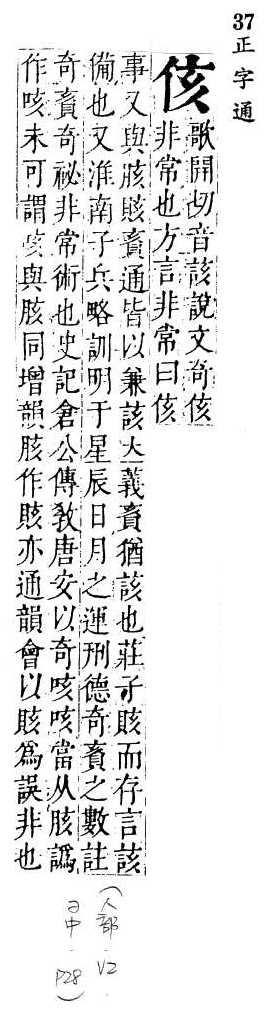 37正字通
侅
歌開切音該說文奇侅
非常也方言非常曰侅
事又與胲賅賌通皆以兼該大義賌猶該也莊子賅而存言該
僃也又淮南子兵略訓明于星辰日月之運刑德奇賌之數註
奇賌奇祕非常術也史記倉公傳敎唐安以奇咳咳當从胲譌
作咳未可謂咳與胲同增韻胲作賅亦通韻會以賅爲誤非也
(人部 V2
中 P28)